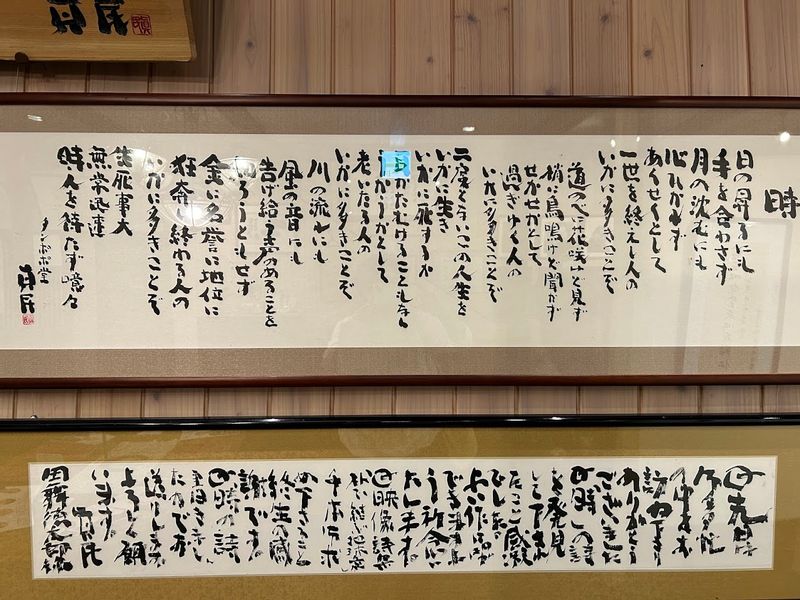 時
日の昇るにも
手を合わさず
月の沈むにも
心ひかれず
あくせくとして
一世を終えし人の
いかに多きことぞ
道のべに花咲けど見ず
梢に鳥鳴けど聞かず
せかせかとして
過ぎゆく人の
いかに多きことぞ
二度とないこの人生を
いかに生き
いかに死するか
かたむけることもなく
うかうかとして
老いたる人の
いかに多きことぞ
川の流れにも
風の音にも
告げ給う声のあることを
知ろうともせず
金に名誉に地位に
狂奔し終わる人の
いかに多きことぞ
生死事大
無常迅速
時人を待たず噫々
タンポポ堂
真民
先日は
ありがとう
ございました
「時」の詩
を発見
して下され
たこと感激
でした。
よい作品が
できますよ
う祈念い
たします。
映像詩集
謝です。
時の詩
送りします
よろしく願
います。
真民